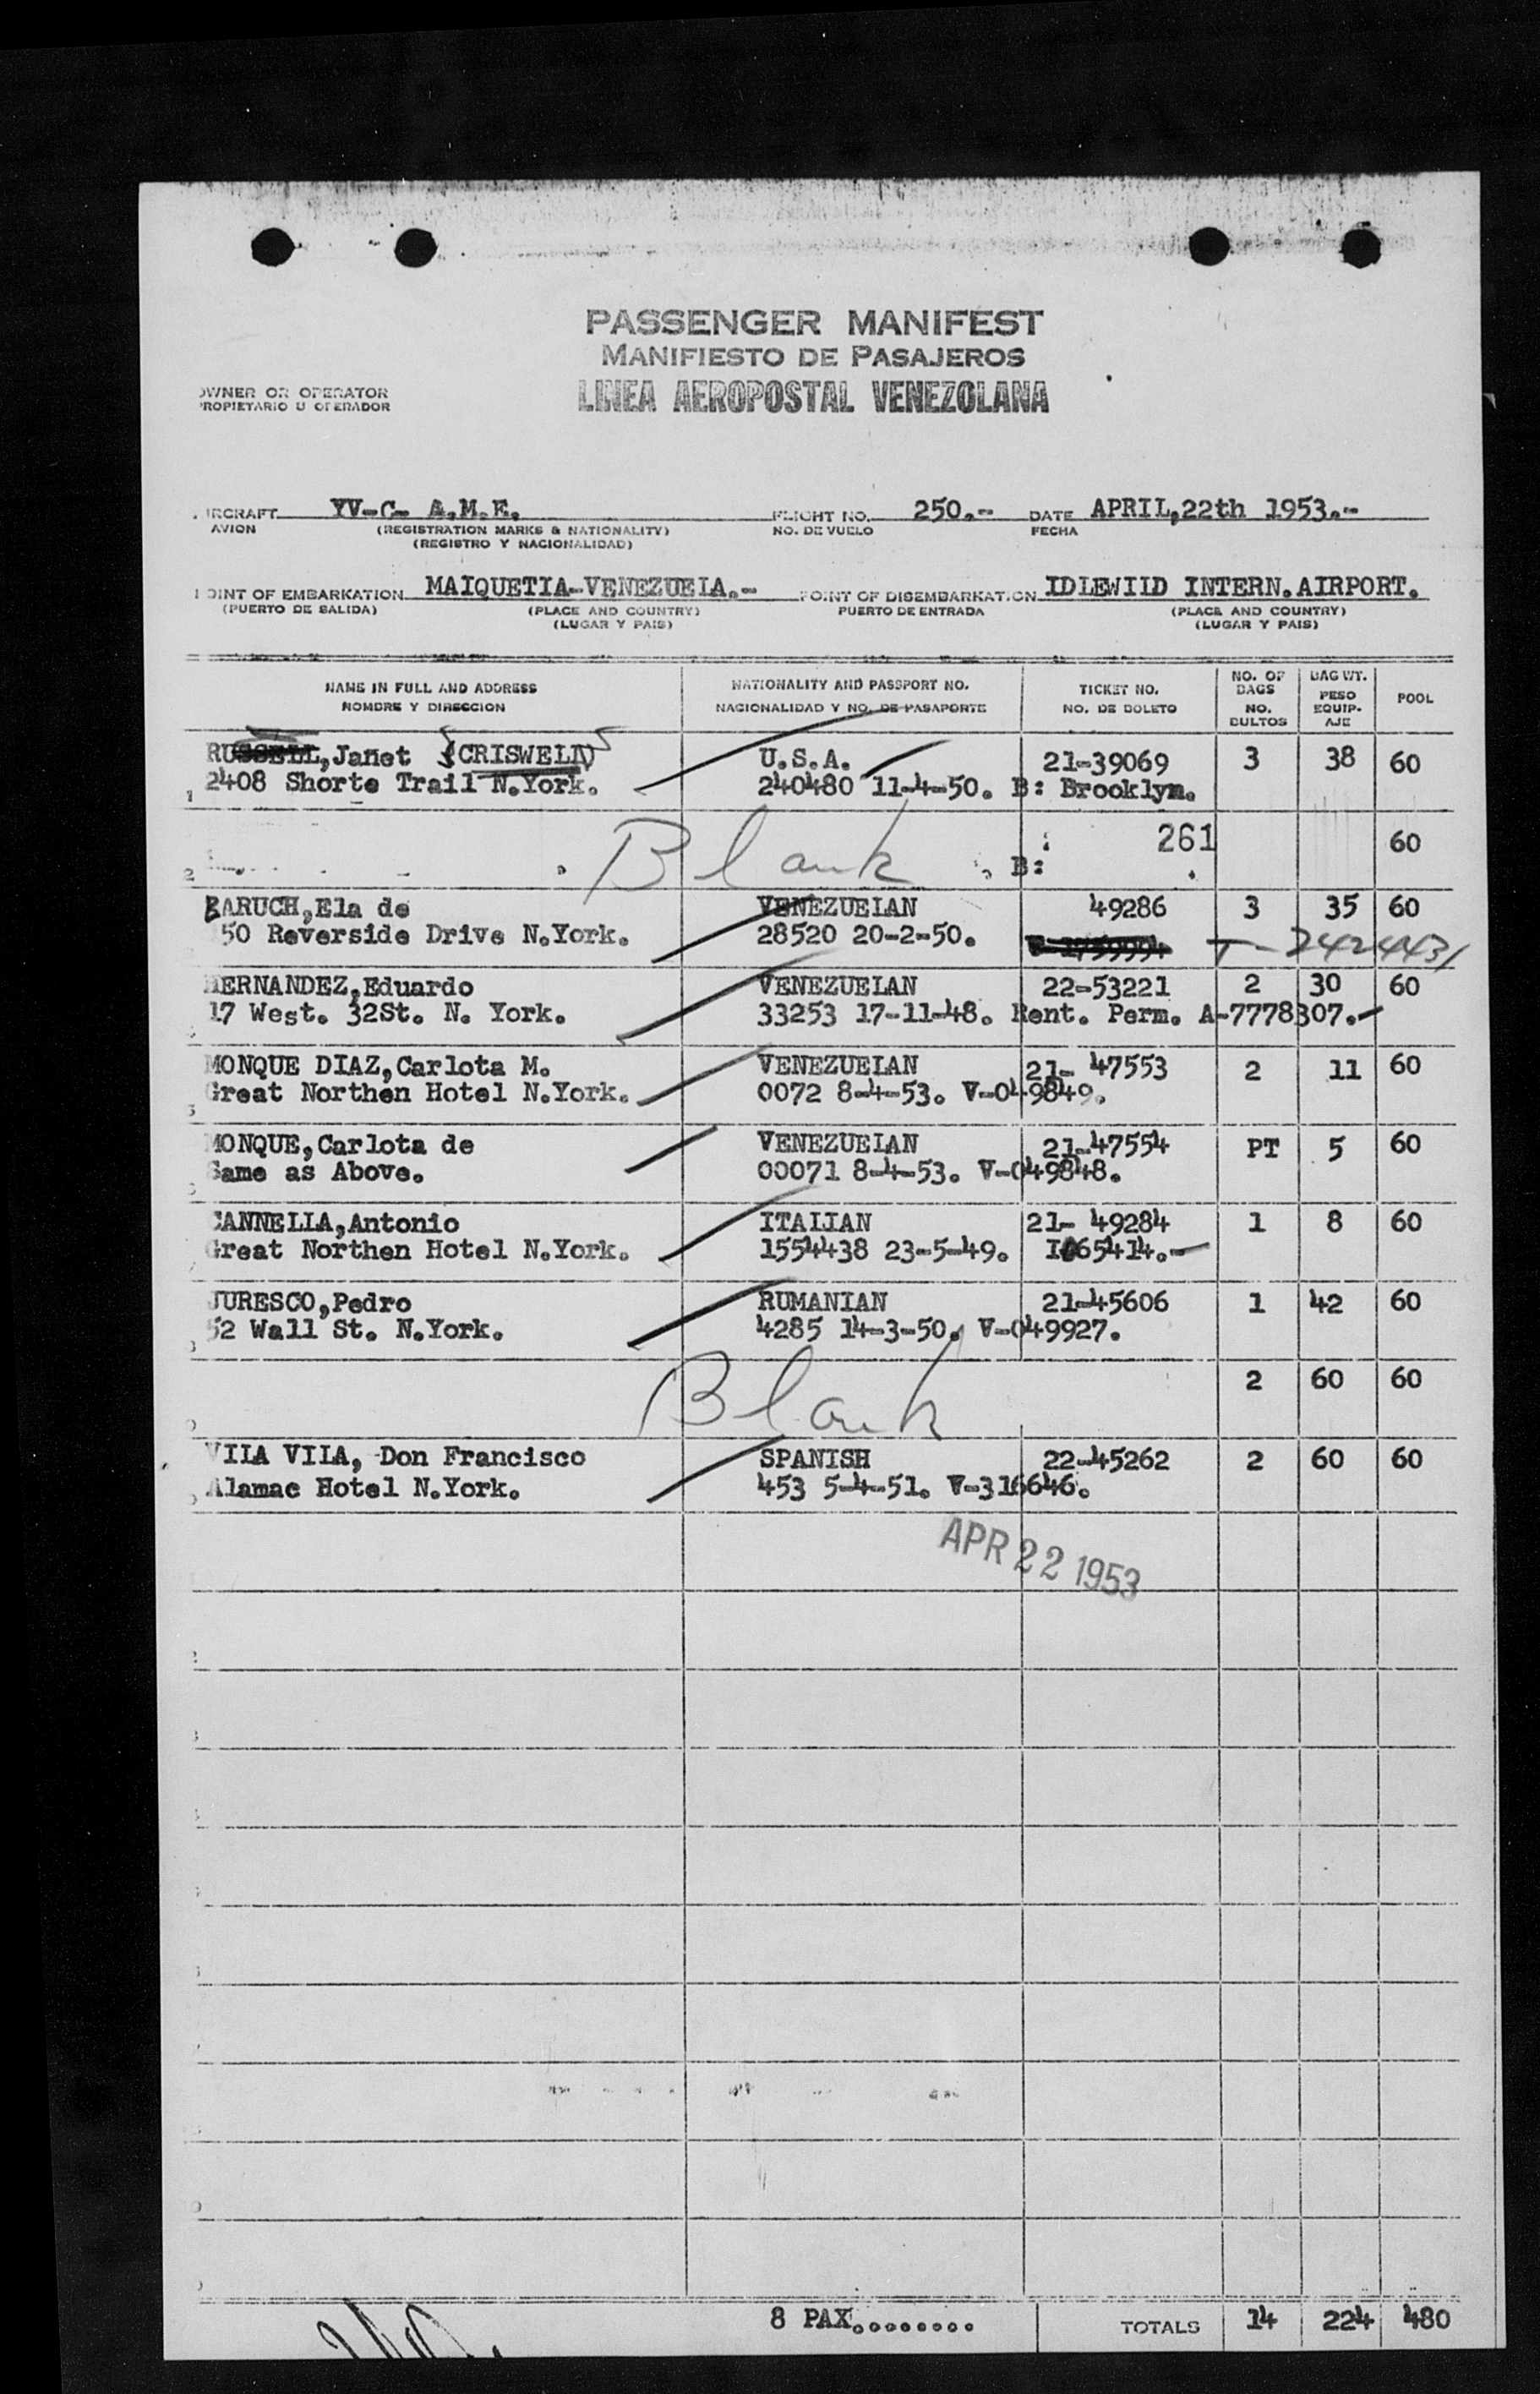 PASSENGER MANIFEST
MANIFIESTO DE PASAJEROS
OWNER OR OPERATOR
PROPIETARIO U OPERADOR
LINEA AEROPOSTAL VENEZOLANA
IRCRAFT YV-C- A.M.E. FLIGHT NO. 250.-- DATE APRIL,22th 1953.--
AVION (REGISTRATION MARKS & NATIONALITY) NO. DE VUELO FECHA
(REGISTRO Y NACIONALIDAD)
OINT OF EMBARKATION MAIQUETIA-VENEZUELA.- POINT OF DISEMBARKATION IDLEWILD INTERN.AIRPORT.
(PUERTO DE SALIDA) (PLACE AND COUNTRY) PUERTO DE ENTRADA (PLACE AND COUNTRY)
(LUGAR Y PAIS) (LUGAR Y PAIS)
NAME IN FULL AND ADDRESS NATIONALITY AND PASSPORT NO. TICKET NO. NO. OF BAGS BAG WT. POOL
NOMBRE Y DIRECCION NACIONALIDAD Y NO. DE PASAPORTE NO. DE BOLETO NO. BULTOS PESO EQUIP-AJE
RUSSELL,Janet (CRISWELL) U.S.A. 21-39069 3 38 60
1 2408 Shorte Trail N.York. 240480 11-4-50. B: Brooklyn.
Blank : 261 60
2 B: .
BARUCH,Ela de VENEZUELAN 49286 3 35 60
50 Reverside Drive N.York. 28520 20-2-50. T-2424431
HERNANDEZ,Eduardo VENEZUELAN 22-53221 2 30 60
17 West. 32St. N. York. 33253 17-11-48. Rent. Perm. A-7778307.-
MONQUE DIAZ,Carlota M. VENEZUELAN 21- 47553 2 11 60
Great Northen Hotel N.York. 0072 8-4-53. V-049849.
MONQUE,Carlota de VENEZUELAN 21-47554 PT 5 60
Same as Above. 00071 8-4-53. V-049848.
CANNELLA,Antonio ITALIAN 21- 49284 1 8 60
Great Northen Hotel N.York. 1554438 23-5-49. I065414.-
JURESCO,Pedro RUMANIAN 21-45606 1 42 60
52 Wall St. N.York. 4285 14-3-50. V-049927.
Blank 2 60 60
VILA VILA, Don Francisco SPANISH 22-45262 2 60 60
Alamac Hotel N.York. 453 5-4-51. V-316646.
APR 22 1953
8 PAX......... TOTALS 14 224 480